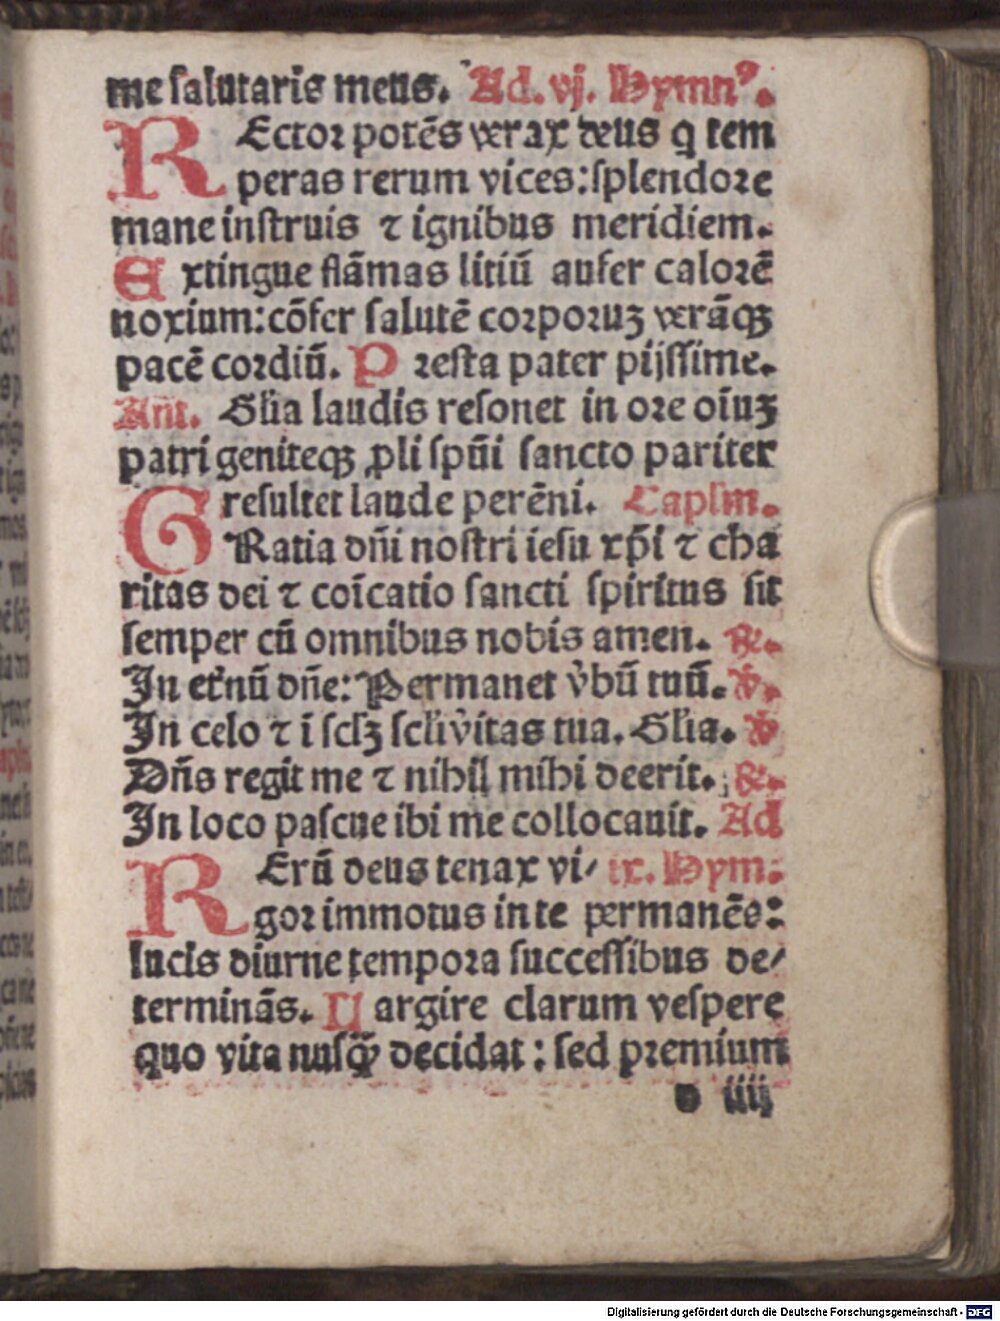 me salutaris meus. Ad. vj. Hymnꝰ.
REctoꝛ potēs verax deus q tem
peras rerum vices: splendoꝛe
mane instruis ⁊ ignibus meridiem.
Extingue flāmas litiū aufer caloꝛē
noxium: cōfer salutē coꝛpoꝛuꝫ verāqꝫ
pacē coꝛdiū. Pꝛesta pater pijssime.
Añt. Glia laudis resonet in oꝛe oīuꝫ
patri geniteqꝫ ꝓli spūi sancto pariter
resultet laude perēni. Caplm.
GRatia dñi nostri iesu xp̄i ⁊ cha
ritas dei ⁊ coīcatio sancti spiritus sit
semper cū omnibus nobis amen. ℞.
In et̉nū dñe: Permanet v̉bū tuū. ℣.
In celo ⁊ ī scl̓ꝫ scl̓i v̉itas tua. Glia. ℣
Dñs regit me ⁊ nihil mihi deerit. ℞.
In loco pascue ibi me collocauit. Ad
RErū deus tenax vi⸗ ix. Hym:
goꝛ immotus in te permanēs:
lucis diurne tempoꝛa successibus de⸗
terminās. Largire clarum vespere
quo vita nusqꝫ̄ decidat: sed pꝛemium
d iiij
Digitalisierung gefördert durch die Deutsche Forschungsgemeinschaft - DFG